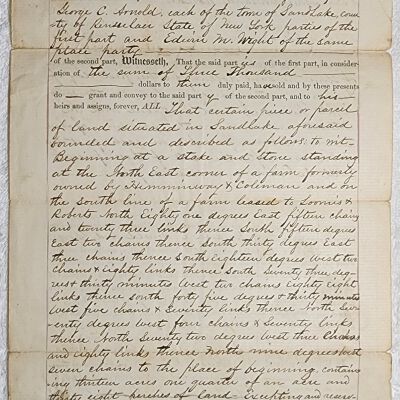 George C. Arnold, each of the town of Sandlake, coun
ty of Rensselaer State of New York parties of the
first part and Edwin M. Wight of the same
place party
of the second part, Witnesseth, That the said parties of the first part, in consider-
ation of the sum of Three Thousand
dollars to them duly paid, ha sold and by these presents
do grant and convey to the said party of the second part, and to his
heirs and assigns, forever, ALL That certain piece or parcel
of land situated in Sandlake aforesaid
bounded and described as follows to wit-
Beginning at a stake and Stone standing
at the North East corner of a farm formerly
owned by Hemminway & Coleman and on
the South line of a farm leased to Loomis &
Roberts North Eighty one degrees East fifteen chains
and twenty three links thence South fifteen degrees
East two chains thence South thirty degrees East
three chains thence South Eighteen degrees West two
Chains & eighty links thence South Seventy three deg-
rees & thirty minutes West two chains Eighty eight
links thence south forty five degrees & thirty minutes
West five chains & Seventy links thence North Sev-
enty degrees West four chains & Seventy links
thence North Seventy two degrees West three Chains
and eighty links thence North nine degrees West
seven chains to the place of beginning contain-
ing thirteen acres one quarter of an acre and
thirty eight perches of land - Excepting and reserv-